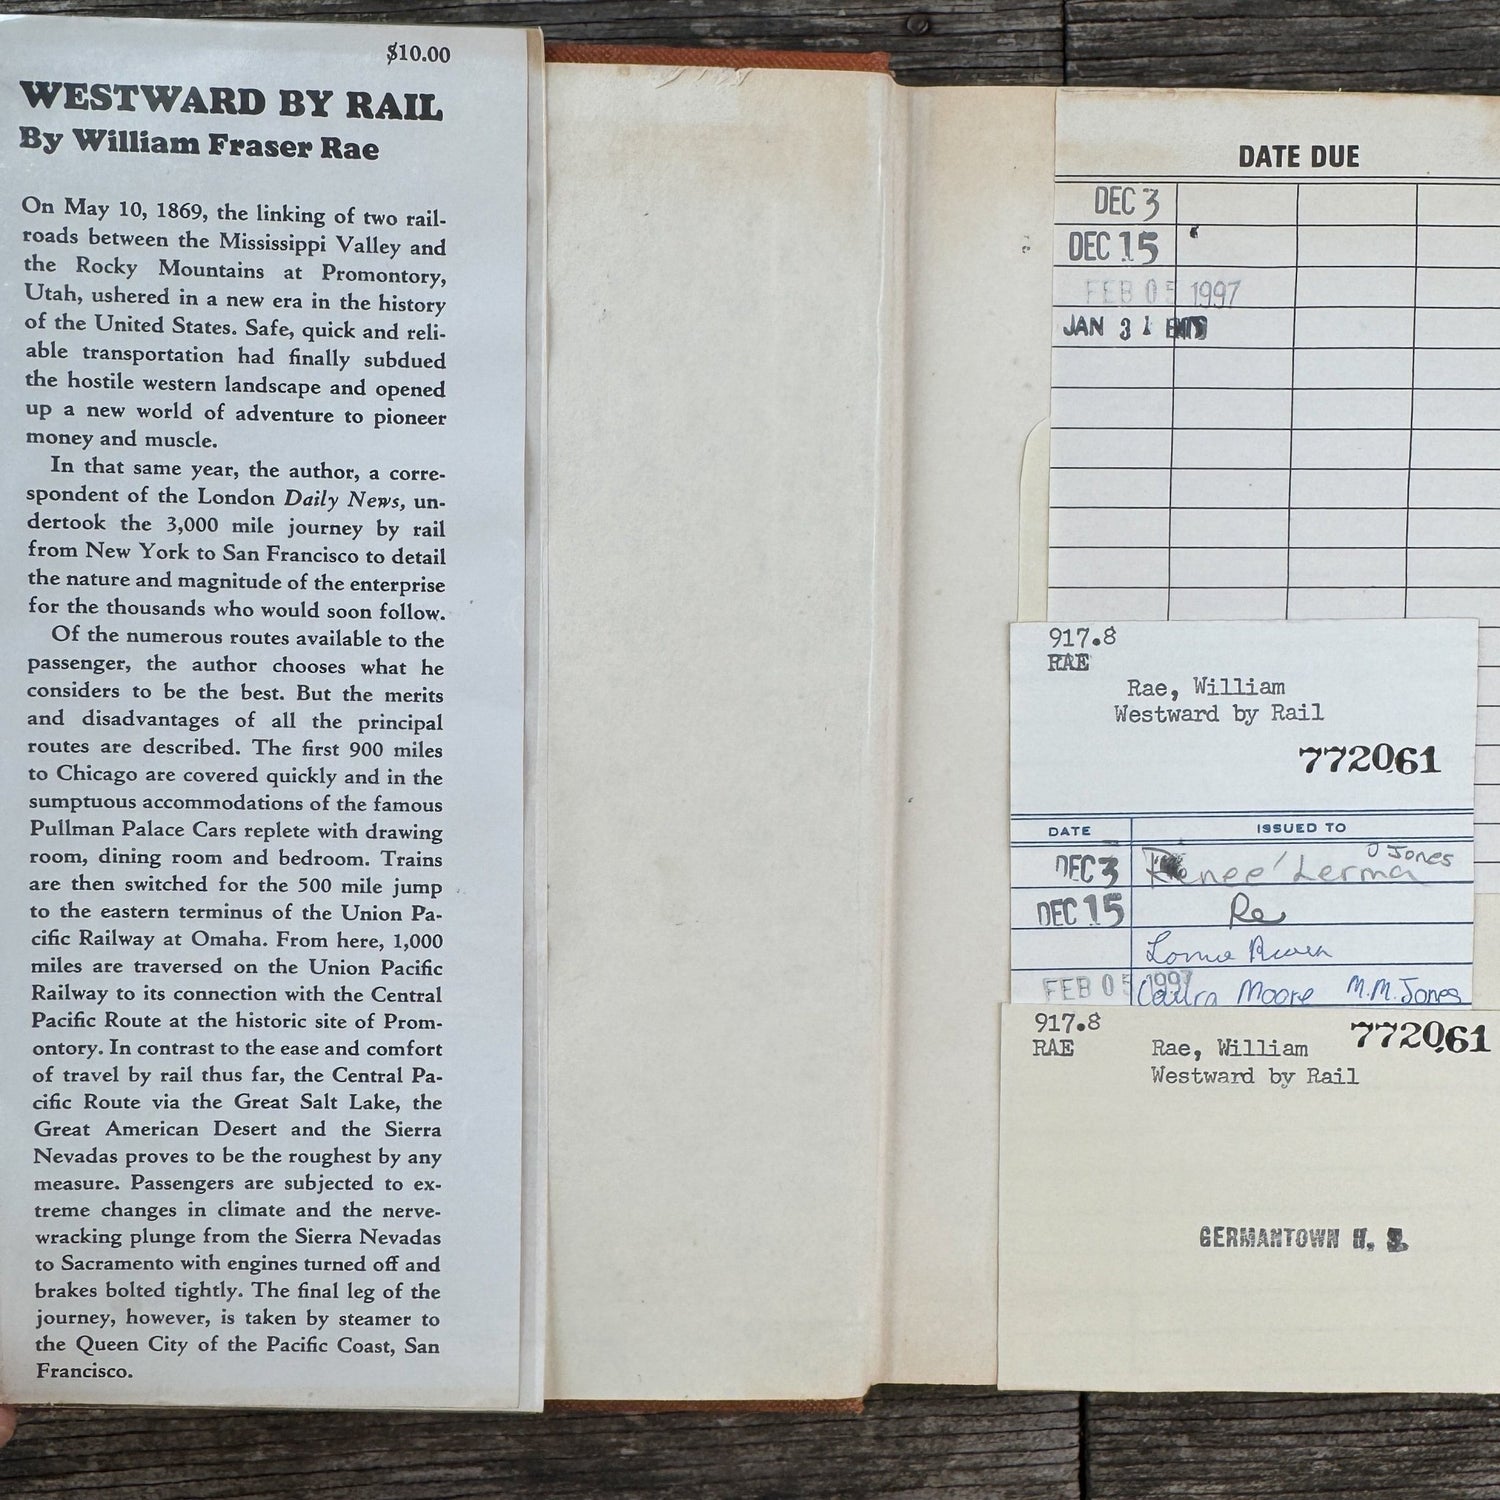 $10.00
WESTWARD BY RAIL
By William Fraser Rae
On May 10, 1869, the linking of two rail-
roads between the Mississippi Valley and
the Rocky Mountains at Promontory,
Utah, ushered in a new era in the history
of the United States. Safe, quick and reli-
able transportation had finally subdued
the hostile western landscape and opened
up a new world of adventure to pioneer
money and muscle.
In that same year, the author, a corre-
spondent of the London Daily News, un-
dertook the 3,000 mile journey by rail
from New York to San Francisco to detail
the nature and magnitude of the enterprise
for the thousands who would soon follow.
Of the numerous routes available to the
passenger, the author chooses what he
considers to be the best. But the merits
and disadvantages of all the principal
routes are described. The first 900 miles
to Chicago are covered quickly and in the
sumptuous accommodations of the famous
Pullman Palace Cars replete with drawing
room, dining room and bedroom. Trains
are then switched for the 500 mile jump
to the eastern terminus of the Union Pa-
cific Railway at Omaha. From here, 1,000
miles are traversed on the Union Pacific
Railway to its connection with the Central
Pacific Route at the historic site of Prom-
ontory. In contrast to the ease and comfort
of travel by rail thus far, the Central Pa-
cific Route via the Great Salt Lake, the
Great American Desert and the Sierra
Nevadas proves to be the roughest by any
measure. Passengers are subjected to ex-
treme changes in climate and the nerve-
wracking plunge from the Sierra Nevadas
to Sacramento with engines turned off and
brakes bolted tightly. The final leg of the
journey, however, is taken by steamer to
the Queen City of the Pacific Coast, San
Francisco.
DATE DUE
DEC 3
DEC 15
FEB 05 1997
JAN 31
917.8
RAE
Rae, William
Westward by Rail
772061
DATE ISSUED TO
DEC 3 Renee' Lerma Jones
DEC 15 Re
FEB 05 1997 Laura Moore M.M. Jones
917.8 772061
RAE Rae, William
Westward by Rail
GERMANTOWN H. S.